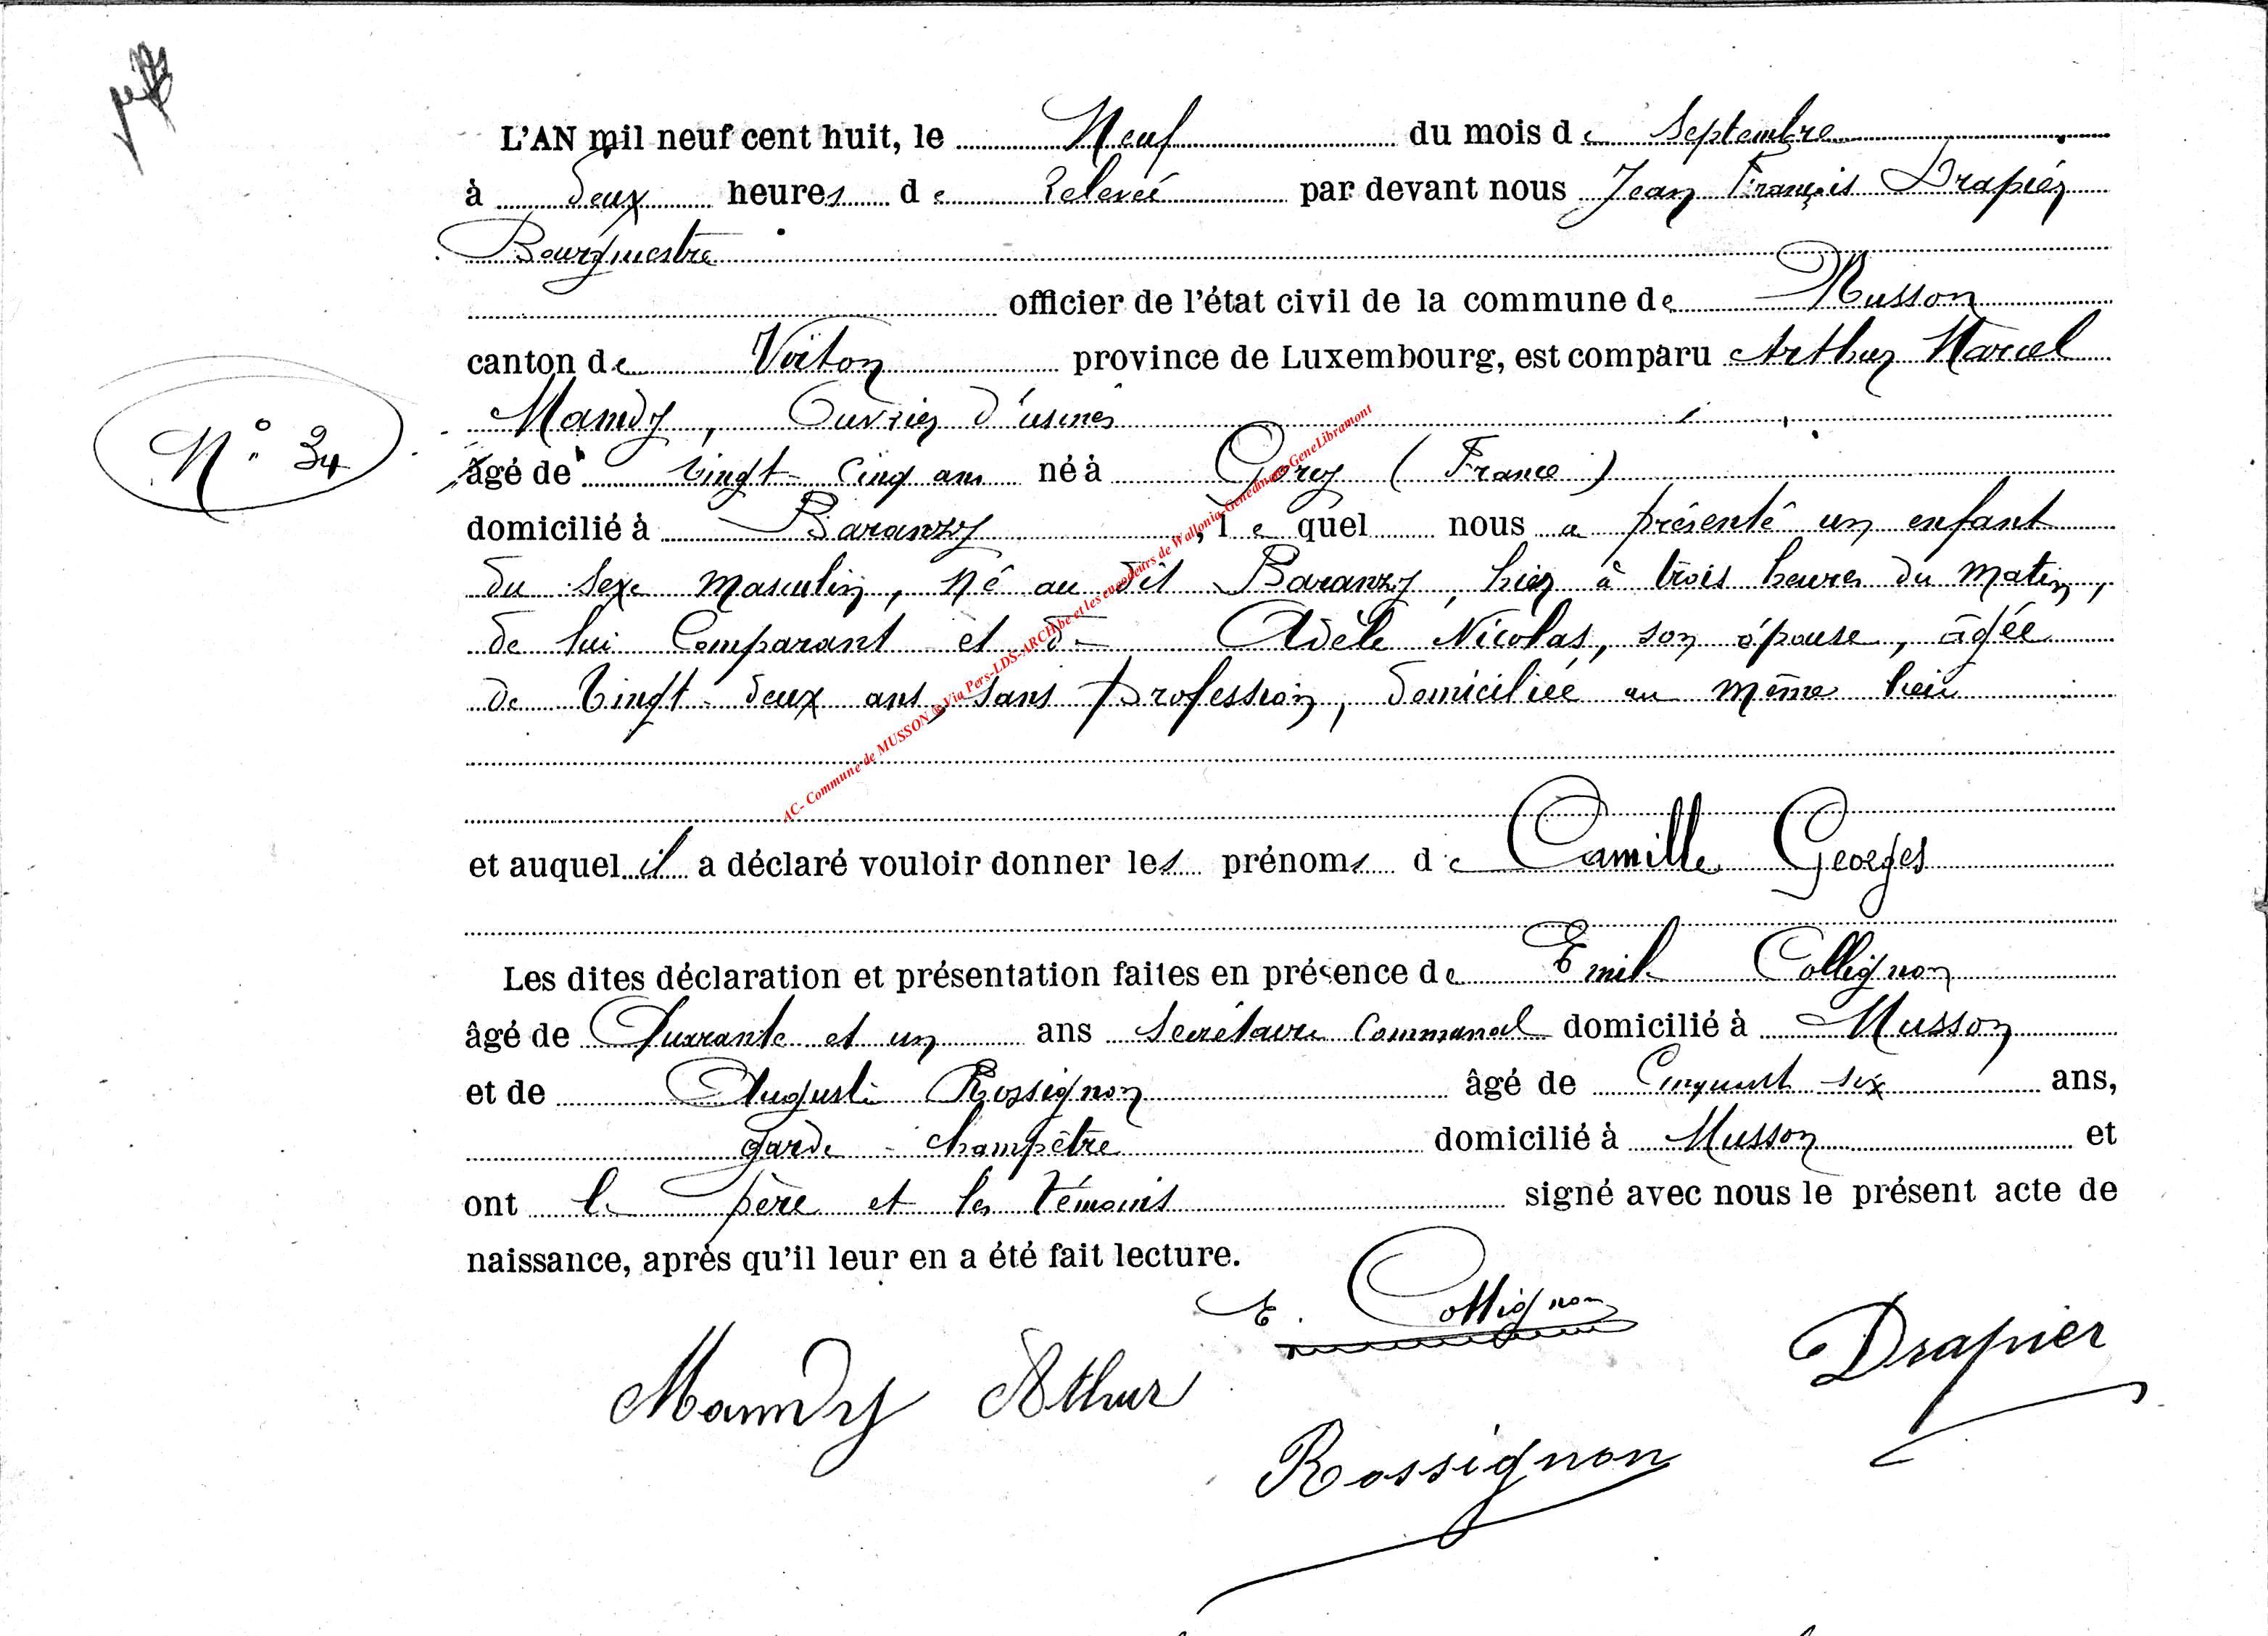 L'AN mil neuf cent huit, le Neuf du mois de Septembre
à deux heures de relevée par devant nous Jean François Drapier
Bourgmestre
officier de l'état civil de la commune de Musson
canton de Virton province de Luxembourg, est comparu Arthur Marcel
Mamdy, Ouvrier d'usines
N° 34
âgé de vingt-cinq ans né à Gorcy (France)
domicilié à Baranzy, lequel nous a présenté un enfant
du sexe masculin, né au dit Baranzy, hier à trois heures du matin,
de lui Comparant et de Adèle Nicolas, son épouse, âgée
de vingt-deux ans, sans profession, domiciliée au même lieu
AC- Commune de MUSSON ® Via Pers-LDS-ARCH.be et les encodeurs de Wallonia-Genedinant-GeneLibramont
et auquel il a déclaré vouloir donner les prénoms de Camille Georges
Les dites déclaration et présentation faites en présence de Emile Collignon
âgé de Quarante et un ans Secrétaire Communal domicilié à Musson
et de Augustin Rossignon âgé de Cinquante six ans,
garde-champêtre domicilié à Musson et
ont le père et les témoins signé avec nous le présent acte de
naissance, après qu'il leur en a été fait lecture.
E. Collignon
Drapier
Mamdy Athur
Rossignon